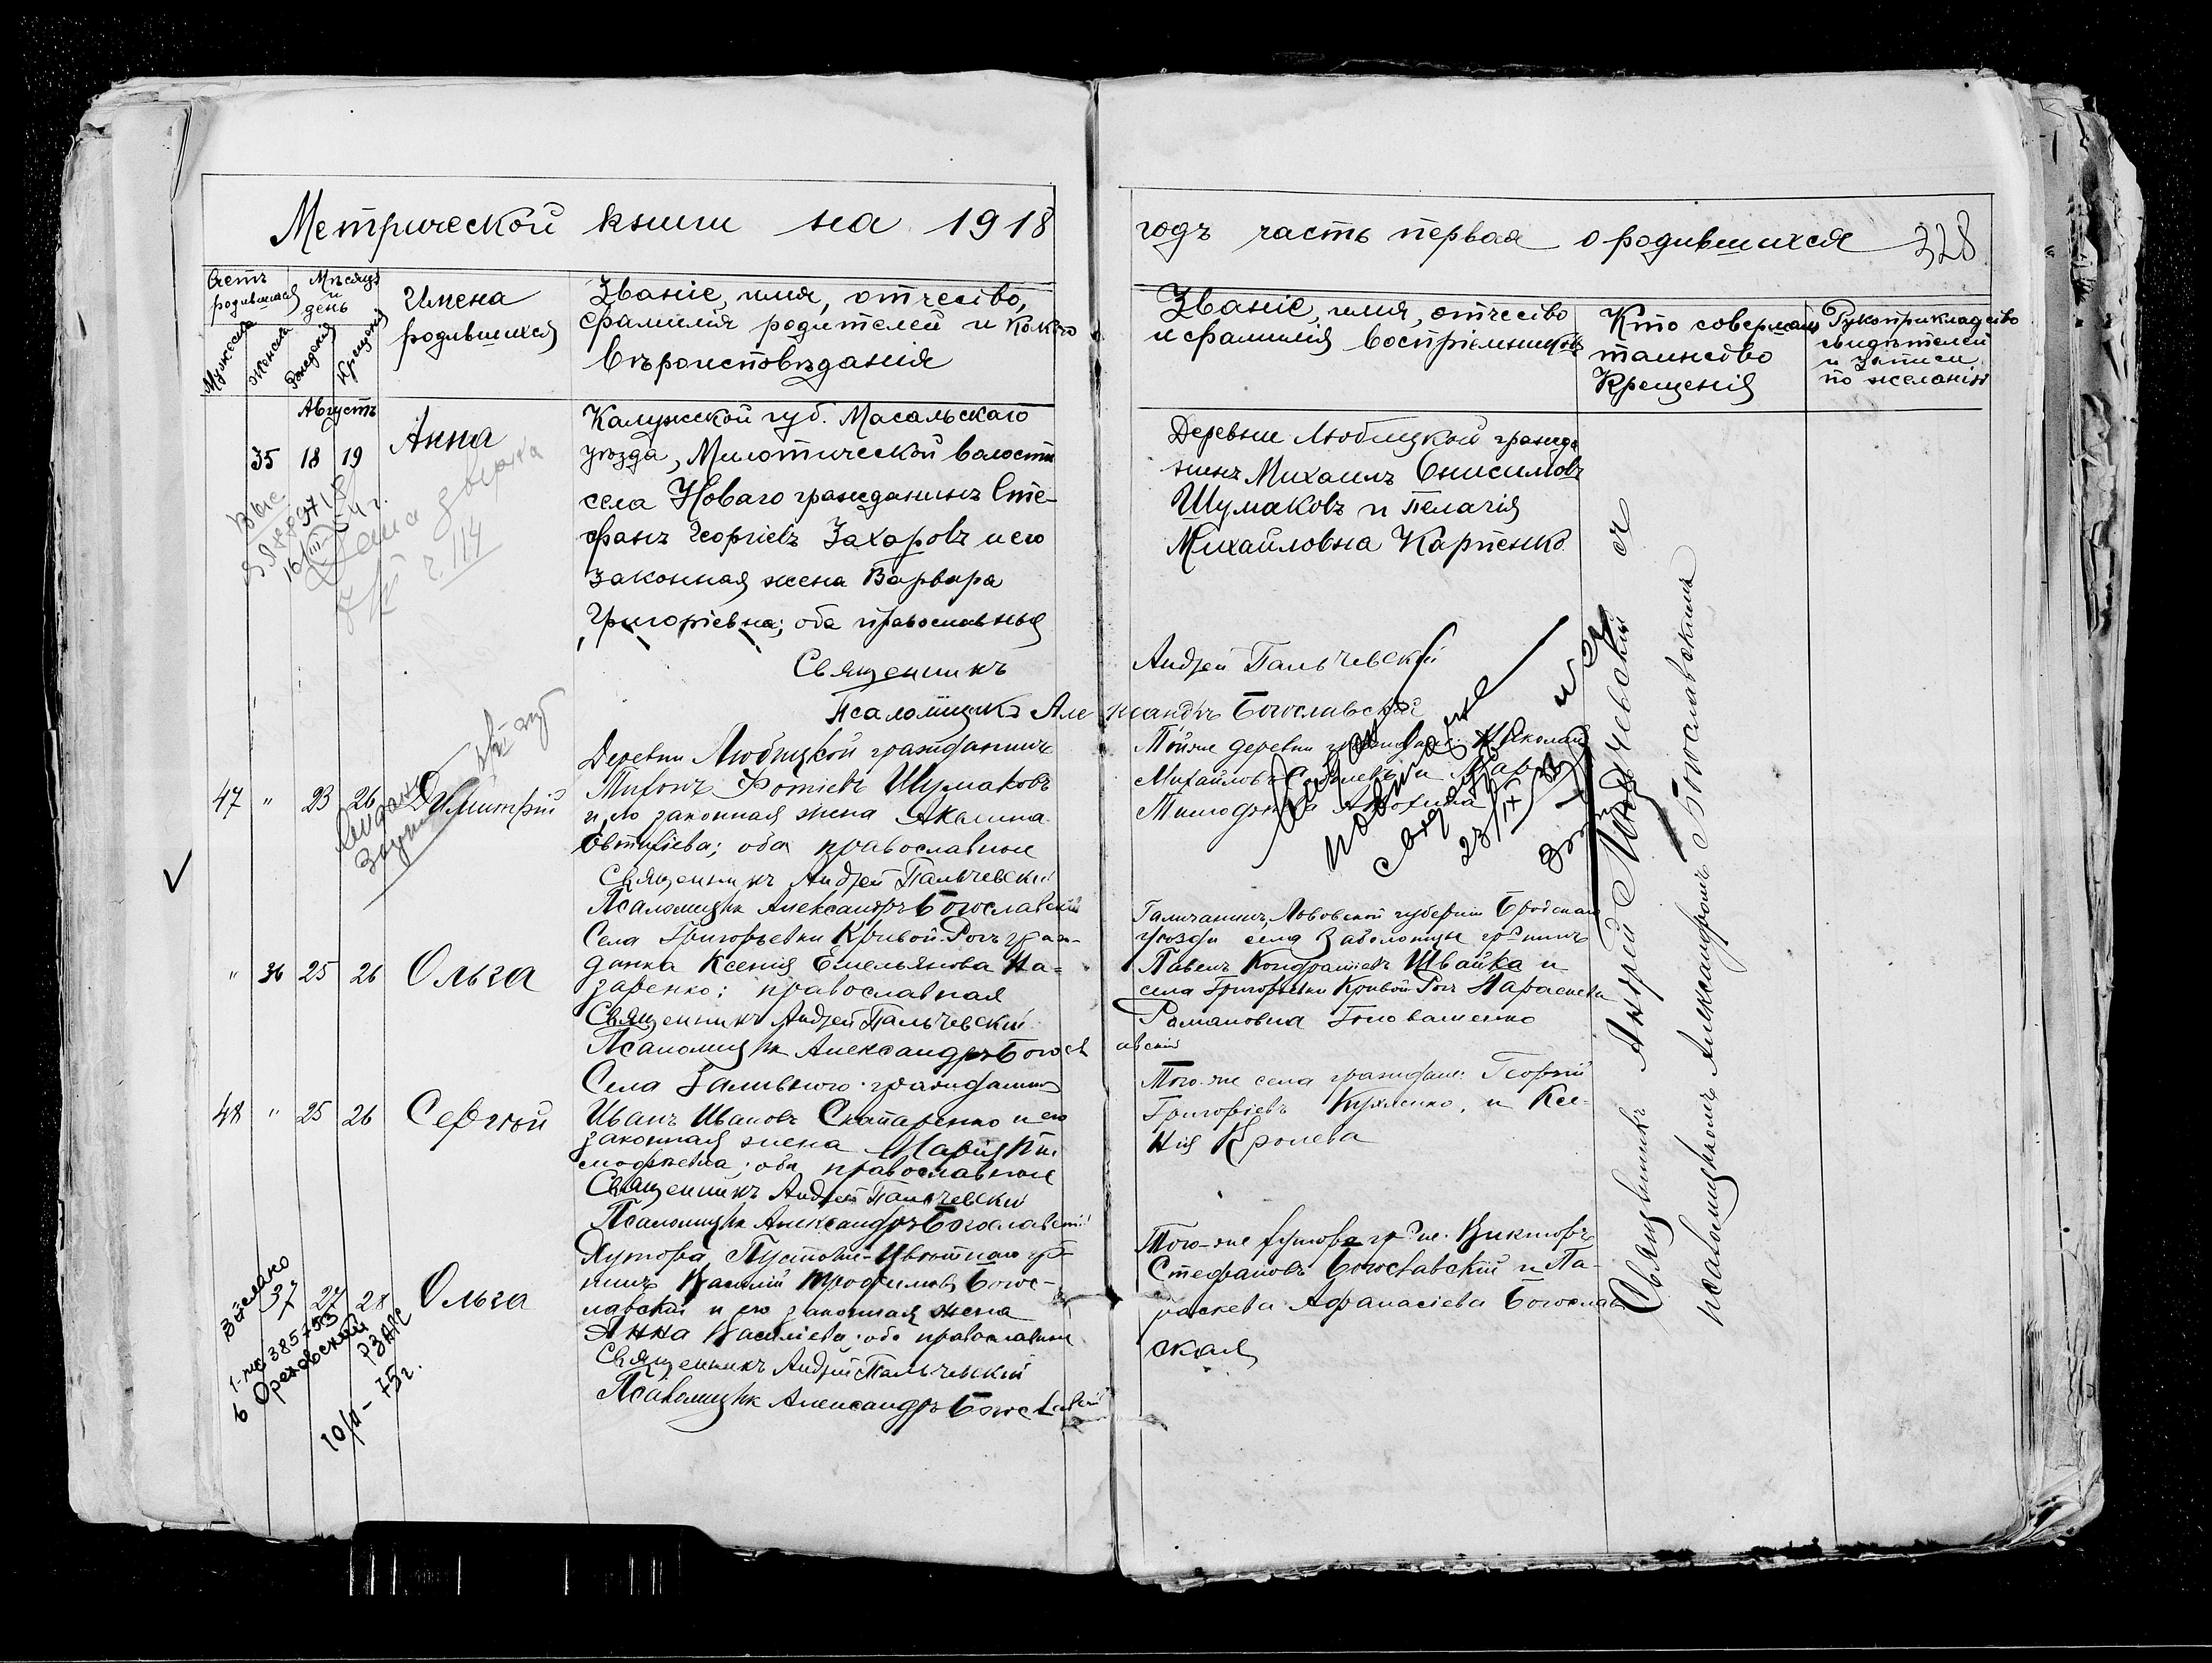 Метрической книги на 1918
годъ часть первая о родившихся 328
Счетъ родившихся
Мѣсяцъ и день
Мужеска
Женска
Рождения
Крещенія
Имена
родившихся
Званіе, имя, отчество,
фамилія родителей и какого
вѣроисповѣданія
Званіе, имя, отчество
и фамилія воспріемниковъ
Кто совершалъ
таинство
Крещенія
Рукоприкладство
свидѣтелей
и записи
по желанію
Августъ
35 18 19 Анна
Калужской губ. Масальскаго
уѣзда, Милотической волости
села Новаго гражданинъ Сте-
фанъ Георгіевъ Захаровъ и его
законная жена Варвара
Григоріевна; оба православныя
Священникъ
Псаломщикъ Але
Деревни Любицкой гражда
нинъ Михаилъ Онисимовъ
Шумаковъ и Пелагія
Михайловна Карпенко
Андрей Пальчевскій
ксандръ Богославскій
47 " 23 26 Димитрій
Деревни Любицкой гражданинъ
Тихонъ Фотіевъ Шумаковъ
и его законная жена Акилина
Евтихіева; оба православные
Священникъ Андрей Пальчевскій
Псаломщикъ Александръ Богославскій
Той-же деревни Николай
Михайловъ и
" 36 25 26 Ольга
Села Григорьевки Кривой-Рогъ граж-
данка Ксенія Емельянова На-
заренко; православная
Священникъ Андрей Пальчевскій
Псаломщикъ Александръ Богосл
Галичанинъ, Львовской губерніи Бродскаго
уѣзда села Заболотцы гр-нинъ
Павелъ Кондратіевъ Швайка и
села Григорьевки Кривой-Рогъ Параскева
Романовна Головашенко
авскій
48 " 25 26 Сергѣй
Села гражданинъ
Иванъ Ивановъ Скапаренко и его
законная жена Марія Ти-
мофеевна; оба православные
Священникъ Андрей Пальчевскій
Псаломщикъ Александръ Богославскій
Того-же села гражданинъ Георгій
Григоріевъ и Ксе-
нія Кролева
37 27 28 Ольга
Хутора гр-
нинъ Василій Трофимовъ Богос-
лавскій и его законная жена
Анна Василіева; оба православные
Священникъ Андрей Пальчевскій
Псаломщикъ Александръ Богославскій
Того-же хутора гр-не Викторъ
Стефановъ Богославскій и Па-
раскева Афанасіева Богослав
ская
Священникъ Андрей Пальчевскій съ
псаломщикомъ Александромъ Богославскимъ
16/III-54 г.
Дана
г. 114
Выдано
повторное
свидет
23/IX
1-жс 385753
в Ореховский РЗАГС
10/II-75г.